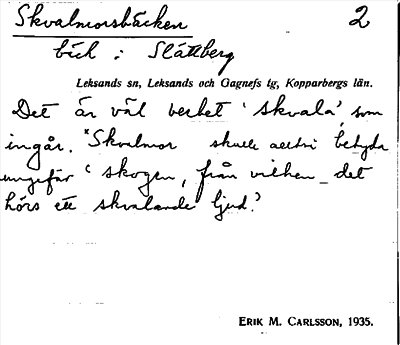 Skvalmorsbäcken 2
bäck i Slättberg
Leksands sn, Leksands och Gagnefs tg, Kopparbergs län.
Det är väl verbet 'skvala', som
ingår. *Skvalmor skulle alltså betyda
ungefär 'skogen, från vilken det
hörs ett skvalande ljud.'
ERIK M. CARLSSON, 1935.